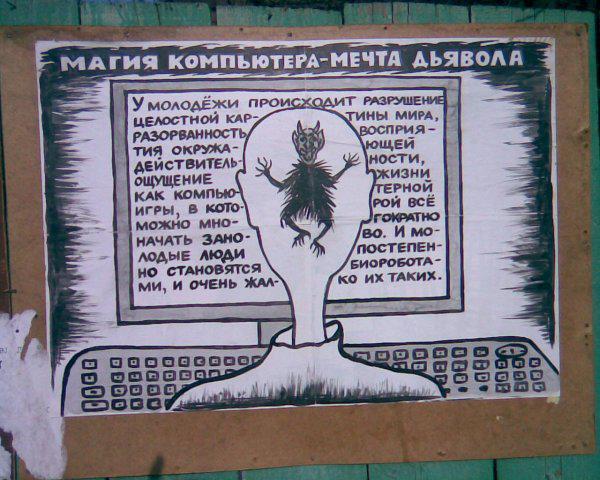 МАГИЯ КОМПЬЮТЕРА-МЕЧТА ДЬЯВОЛА
У МОЛОДЁЖИ ПРОИСХОДИТ РАЗРУШЕНИЕ
ЦЕЛОСТНОЙ КАР- ТИНЫ МИРА,
РАЗОРВАННОСТЬ ВОСПРИЯ-
ТИЯ ОКРУЖА- ЮЩЕЙ
ДЕЙСТВИТЕЛЬ- НОСТИ,
ОЩУЩЕНИЕ ЖИЗНИ
КАК КОМПЬЮ- ТЕРНОЙ
ИГРЫ, В КОТО- РОЙ ВСЁ
МОЖНО МНО- ГОКРАТНО
НАЧАТЬ ЗАНО- ВО. И МО-
ЛОДЫЕ ЛЮДИ ПОСТЕПЕН-
НО СТАНОВЯТСЯ БИОРОБОТА-
МИ, И ОЧЕНЬ ЖАЛ- КО ИХ ТАКИХ.